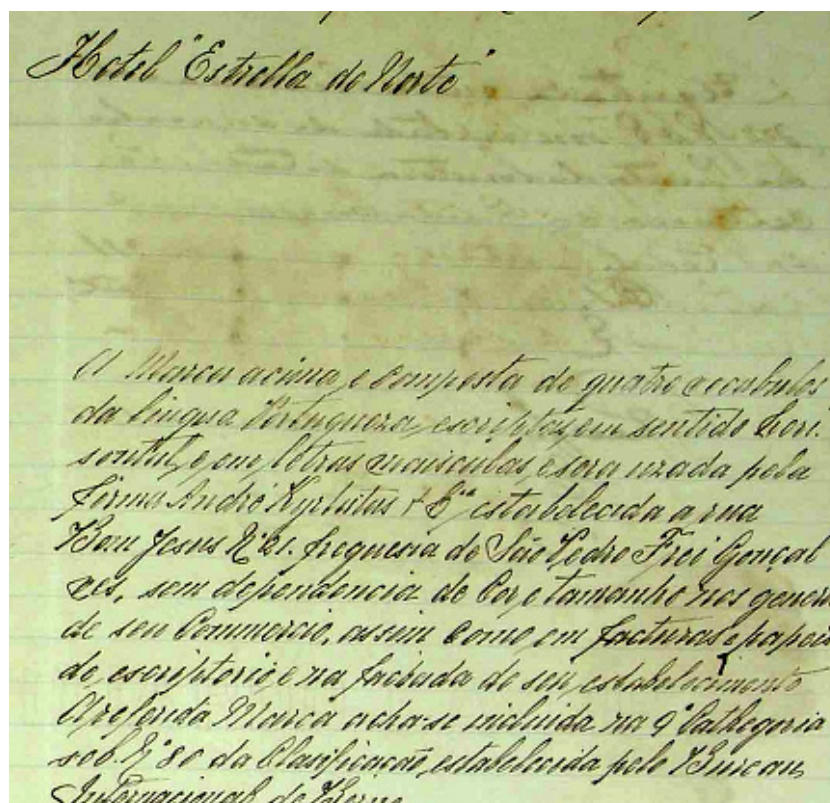 Hotel "Estrella do Norte"
A Marca acima, e composta de quatro vocabulos
da lingua Portugueza, escriptas, em sentido hori-
sontal, e em letras maisculas, e sera uzada pela
firma André & Cia estabelecida a rua
Bom Jesus Nº 21. freguesia de São Pedro Frei Gonçal
ves, sem dependencia de Cor, e tamanho nos generos
de seu Commercio, assim como em facturas, e papeis
de escriptorio, e na fachada do seu, estabelecimento
A referida Marca acha-se incluida na 9ª Cathegoria
sob. Nº 80 da Clasificação, estabelecida pelo Bureau
Internacional de Berne